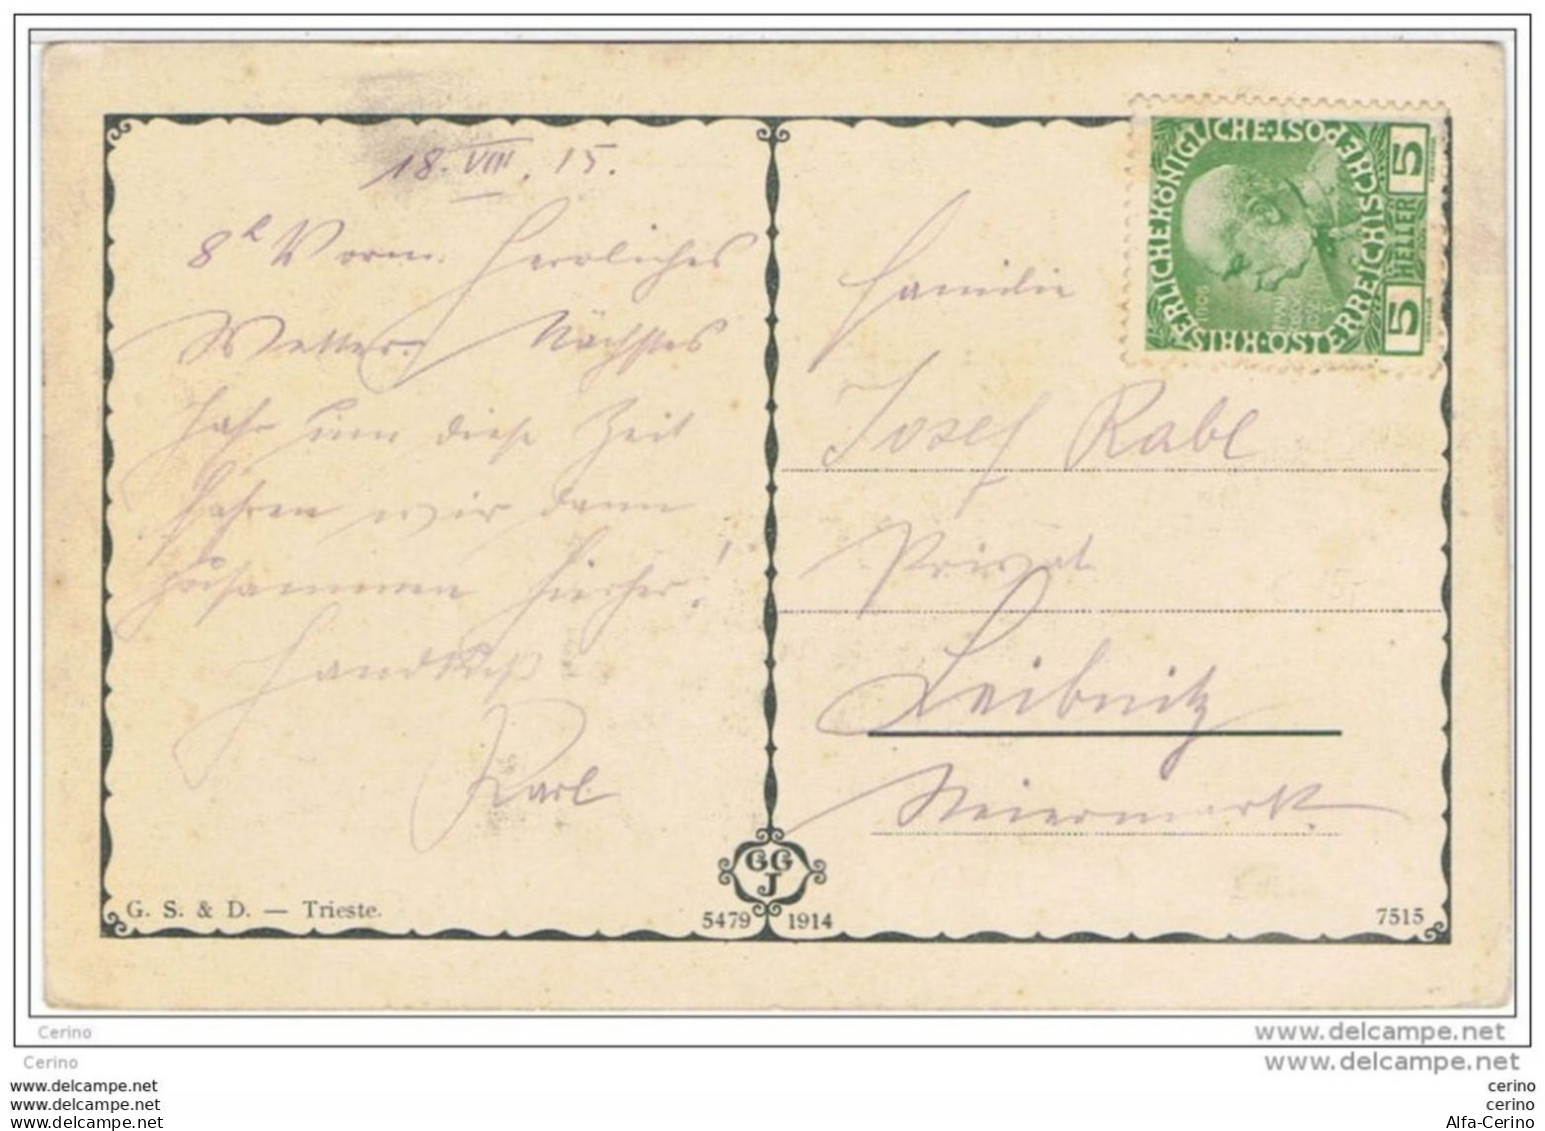 18. VIII. 15.
8h Vorm. Herrliches
Wetter. Nächstes
Jahr um diese Zeit
fahren wir dann
zusammen hierher!
Handkuß
Karl
Familie
Josef Rabl
Privat
Leibnitz
Steiermark.
KAISERLICHE KÖNIGLICHE ÖSTERREICHISCHE POST
5 HELLER 5
1908
G. S. & D. — Trieste.
GG
J
5479 1914
7515
Cerino
www.delcampe.net
Cerino
www.delcampe.net
www.delcampe.net
cerino
www.delcampe.net
cerino
www.delcampe.net
Alfa-Cerino